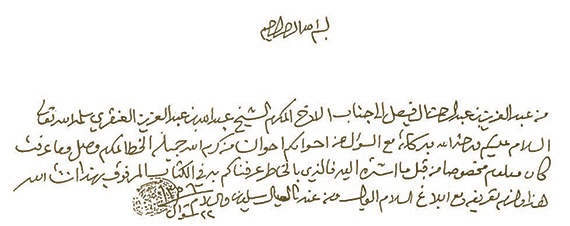 بسم الله الرحمن الرحيم
من عبد العزيز بن عبد الرحمن الفيصل الى جناب الاخ المكرم الشيخ عبد الله بن عبد العزيز العنقري سلمه الله تعالى
السلام عليكم ورحمة الله وبركاته مع السؤال عن احوالكم احوالنا من كرم الله جميله الخط المكرم وصل وما عرفت
كان معلوم مخصوصا من قبل ما اشرت اليه فالذي بالخاطر عرفناكم به في الكتاب المرفوق بهذا ان شاء الله
هذا ما لزم تعريفه مع ابلاغ السلام العيال ومن عندنا العيال يسلمون والسلام
٢٢ شوال